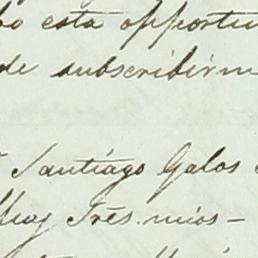 bo esta opportu
de subscribirm
Santiago Galos
Muy Srēs. mios-